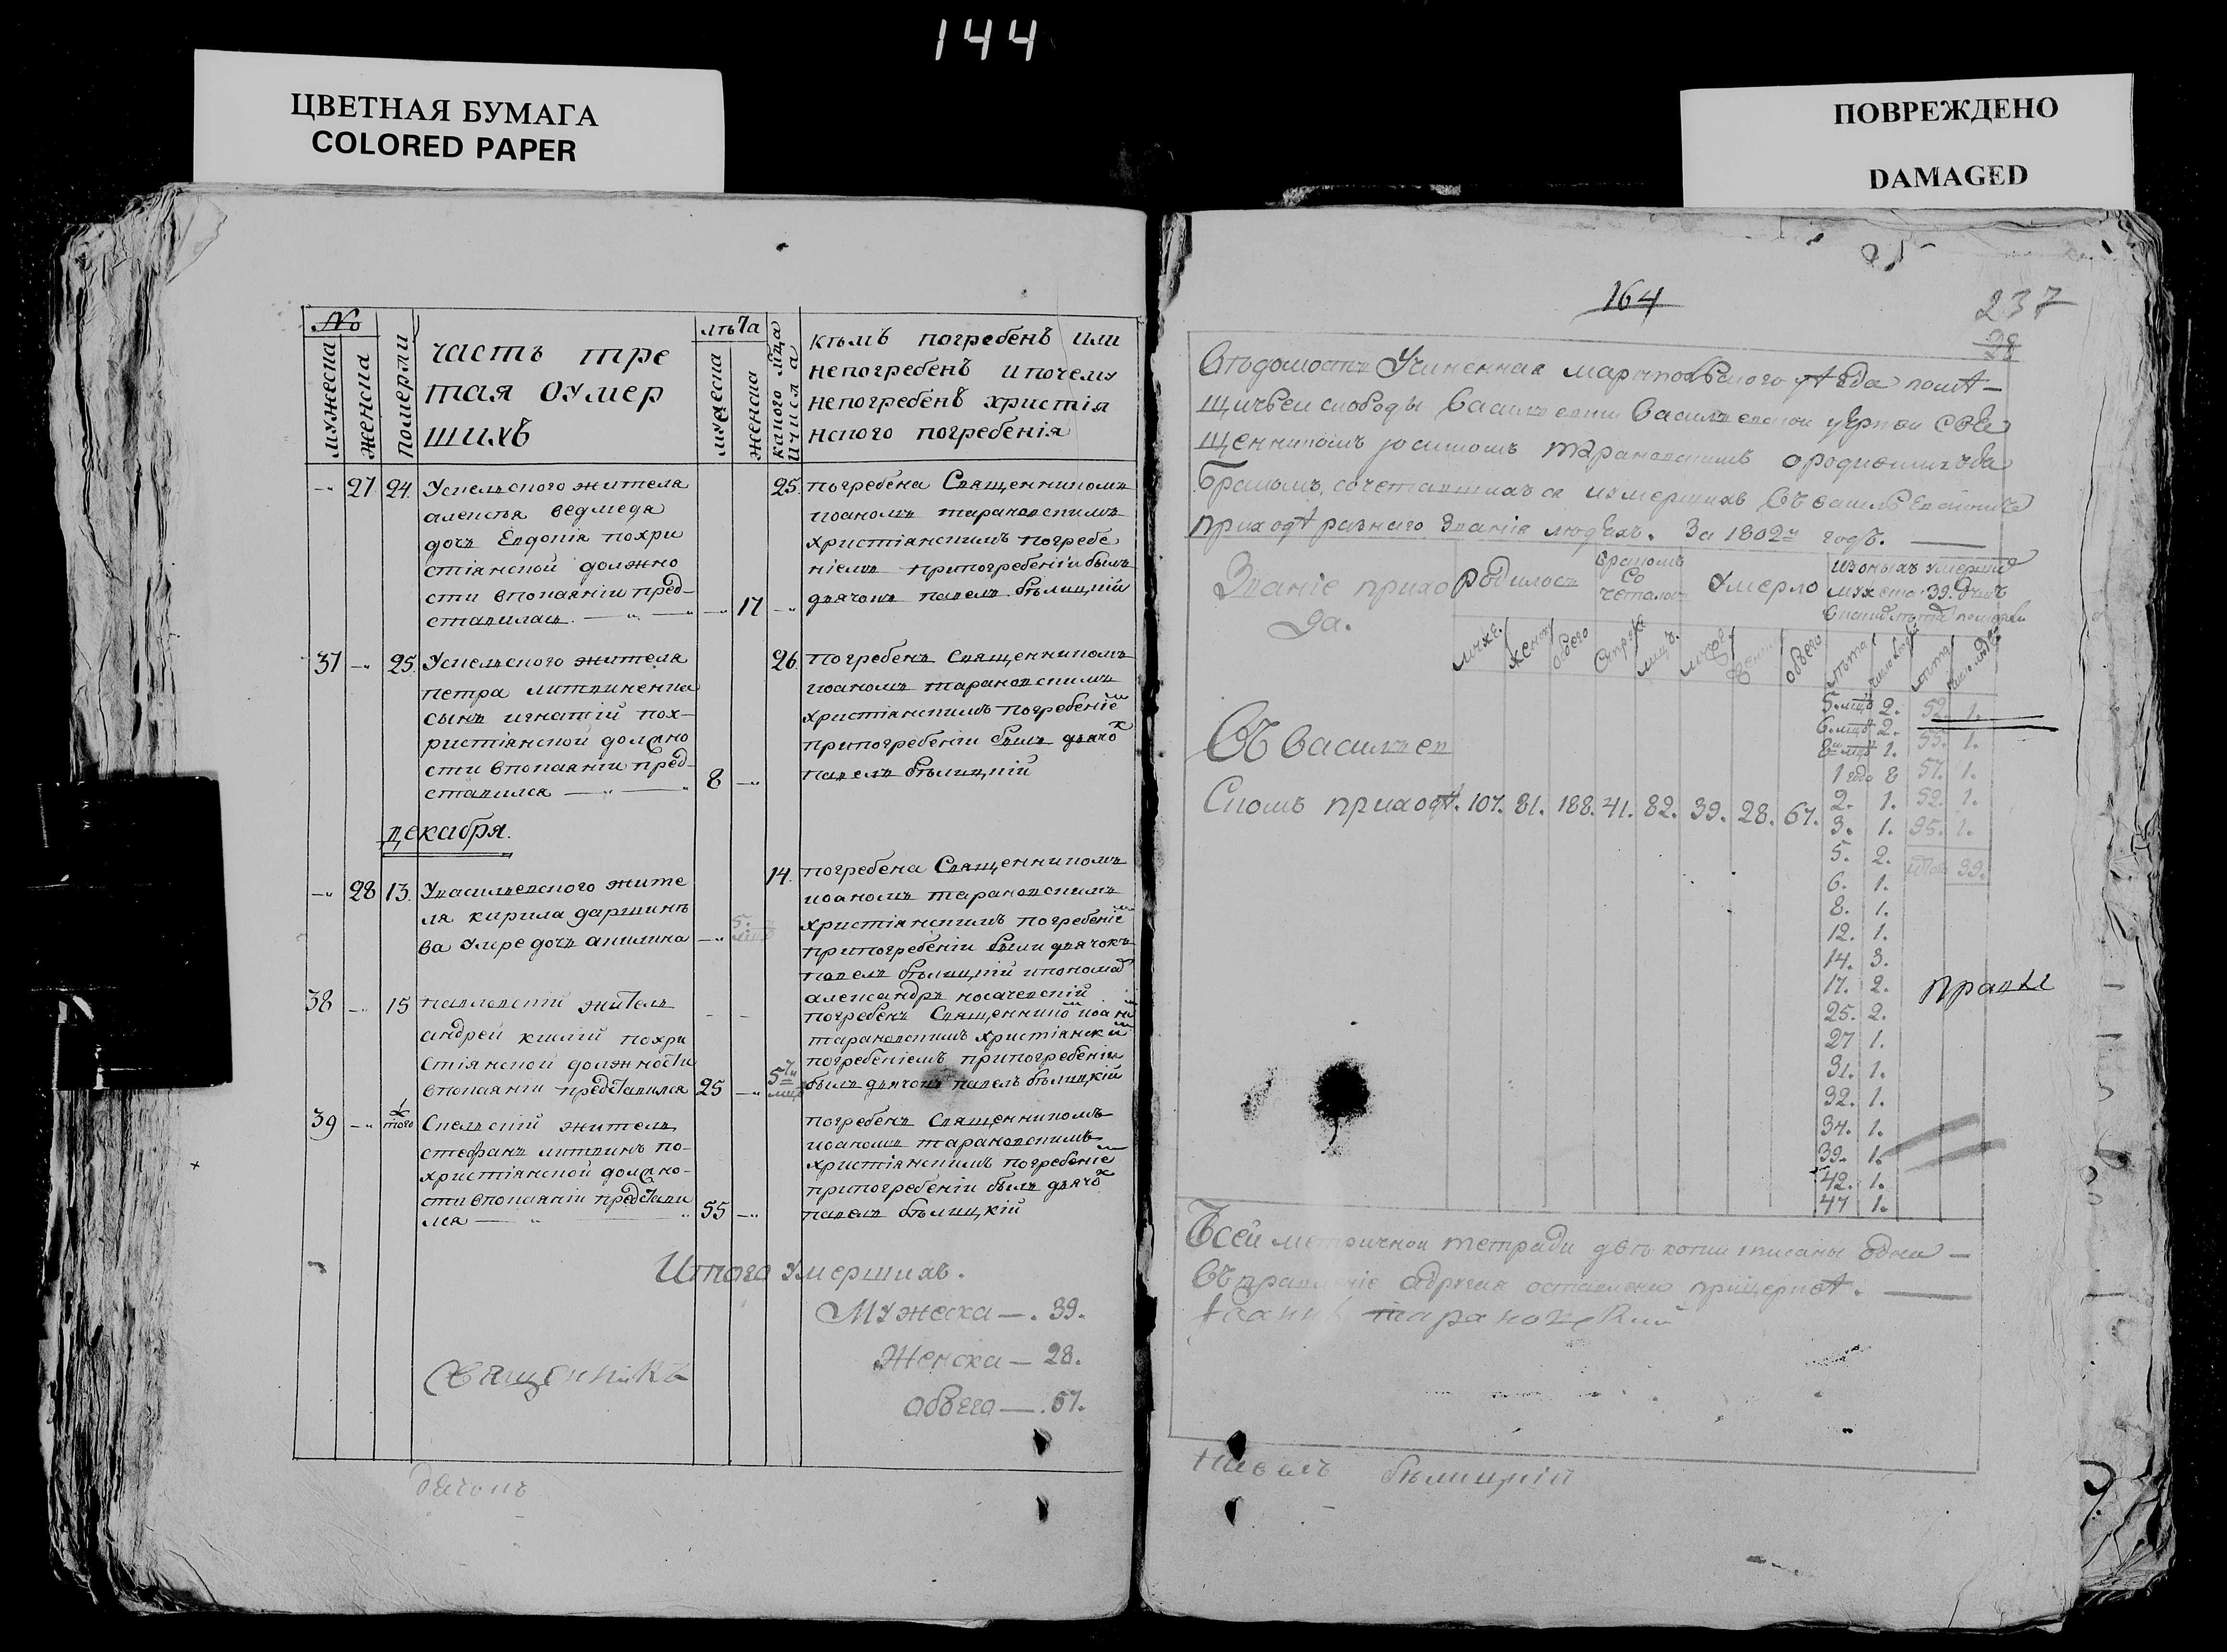 144
ЦВЕТНАЯ БУМАГА
COLORED PAPER
ПОВРЕЖДЕНО
DAMAGED
№
мужеска
женска
Померли
часть тре
тая оумер
шихъ
лѣта
мужеска
женска
каного мца
ичисла
кѣмъ погребенъ или
непогребенъ ипочему
непогребенъ христія
нского погребенія
27 24. Успельского жителя
алексѣя ведмедя
дочъ Евдокія похри
стіянской должно
сти впокаяніи пред-
ставилась
17
25. погребена Священникомъ
иоаномъ тарановскимъ
христіянскимъ погребе
ніемъ припогребеніи былъ
дьячокъ павелъ бѣлицкій
37 25. Успельского жителя
петра литвиненка
сынъ игнатій пох-
ристіянской должно
сти впокаяніи пред-
ставился
8
26. погребенъ Священникомъ
иоаномъ тарановскимъ
христіянскимъ погребеніе
припогребеніи былъ дьячо
павелъ бѣлицкій
декабря.
28 13. Увасильевского жите
ля кирила
ва умре дочъ акилина
5. мцъ
14. погребена Священникомъ
иоаномъ тарановскимъ
христіянскимъ погребеніе
припогребеніи были дьячокъ
павелъ бѣлицкій ипономар
александръ носачевскій
38 15 павловскій житель
андрей кислій похри
стіянской должности
впокаяніи представился 25
погребенъ Священнико иоано
тарановскимъ христіянски
погребеніемъ припогребеніи
былъ дьячокъ павелъ бѣлицкій
39 того Спельскій житель
стефанъ литвинъ по-
христіянской должно-
сти впокаяніи представи
лся
55
погребенъ Священникомъ
иоаномъ тарановскимъ
христіянскимъ погребеніе
припогребеніи былъ дьячо
павелъ бѣлицкій
Итого умершихъ.
Мужеска — . 39.
Женска — 28.
обоего — . 67.
Священникъ
дьячокъ
164
237
28
Вѣдомость Учиненная мариупольского уѣзда помѣ-
щичьей слободы Васильевки Васильевской церкви Свя
щенникомъ иоанномъ тарановскимъ ородившихся
Бракомъ сочетавшихся иумершихъ Въ васильевскомъ
приходѣ разнаго Званія людехъ. За 1802й годъ.
Званіе прихо
да.
родилось
бракомъ
со
четалос
Умерло
изоныхъ умерших
мужеска 39. душъ
муже.
женск
обоего
лицъ.
обоего
лѣта
лѣта
Въ Васильев
Скомъ приходѣ. 107. 81. 188. 41. 82. 39. 28. 67.
5. мцъ 2. 52. 1.
6. мцъ 2.
8 мцъ 1. 55. 1.
1 года 8 57. 1.
2. 1. 52. 1.
3. 1. 95. 1.
5. 2.
6. 1. 39.
8. 1.
12. 1.
14. 3.
17. 2.
25. 2.
27 1.
31. 1.
32. 1.
34. 1.
39. 1.
42. 1.
47 1.
Всей метричной тетради двѣ копии писаны одна —
Въ правленіе адругая оставлена прицерквѣ.
Іоаннъ тарановскій
павелъ бѣлицкій